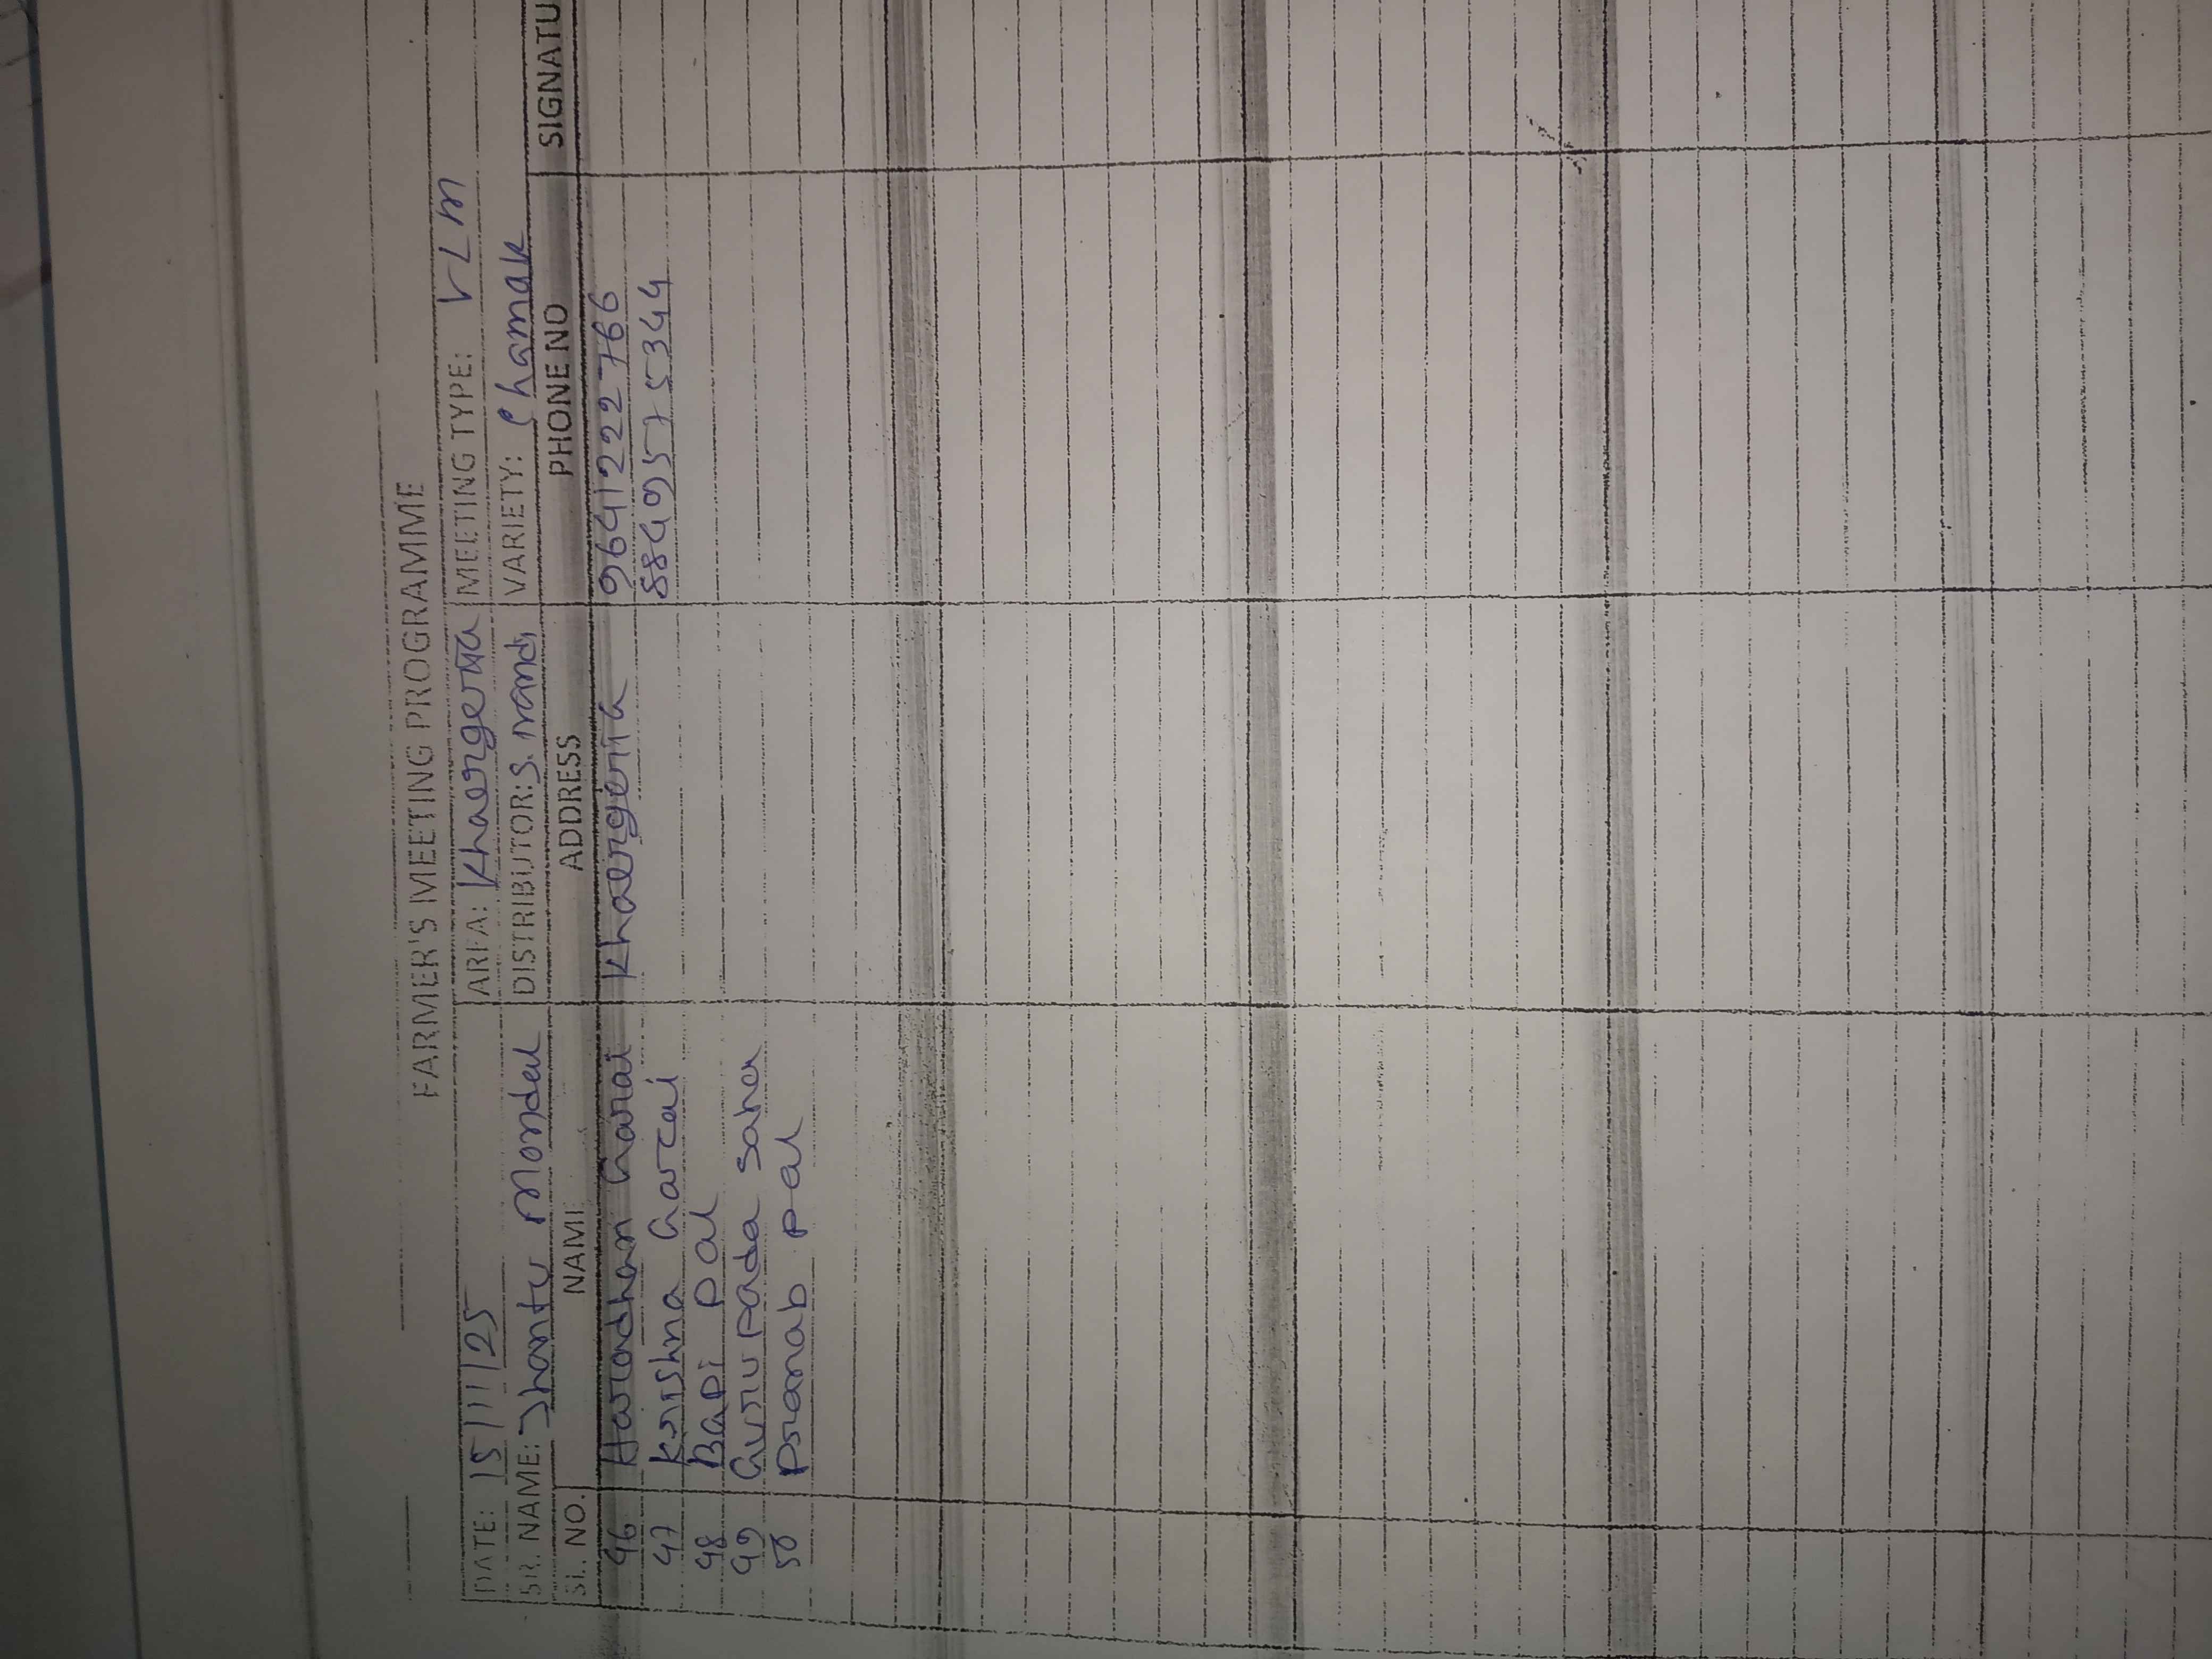 FARMER'S MEETING PROGRAMME
DATE: 15/11/25 AREA: Khaergeria MEETING TYPE: VLM
SR. NAME: Jhantu Mondal DISTRIBUTOR: S. nandi VARIETY: Chamak
SL. NO. NAME ADDRESS PHONE NO SIGNATU
46 Haradhan Garai Khaergeria 9641222766
47 Krishna Garai 8849575344
48 Bapi Pal
49 Guru pada saha
50 Pranab pal